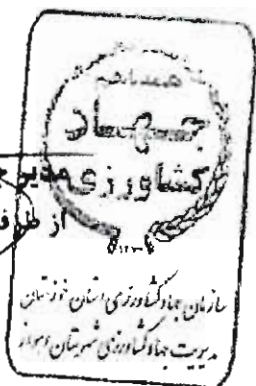 جهاد
کشاورزی
مدیر
از طرف
سازمان جهاد کشاورزی استان خوزستان
مدیریت جهاد کشاورزی شهرستان اهواز